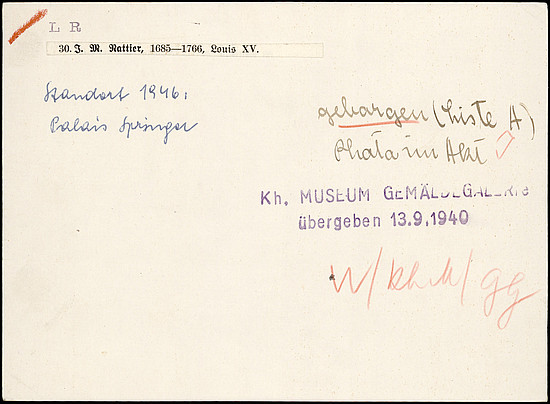 L R
30. J. M. Nattier, 1685—1766, Louis XV.
Standort 1946:
Palais Springer
geborgen (Liste A)
Photo im Akt
Kh. MUSEUM GEMÄLDEGALERIE
übergeben 13.9.1940
W/KhM/GG